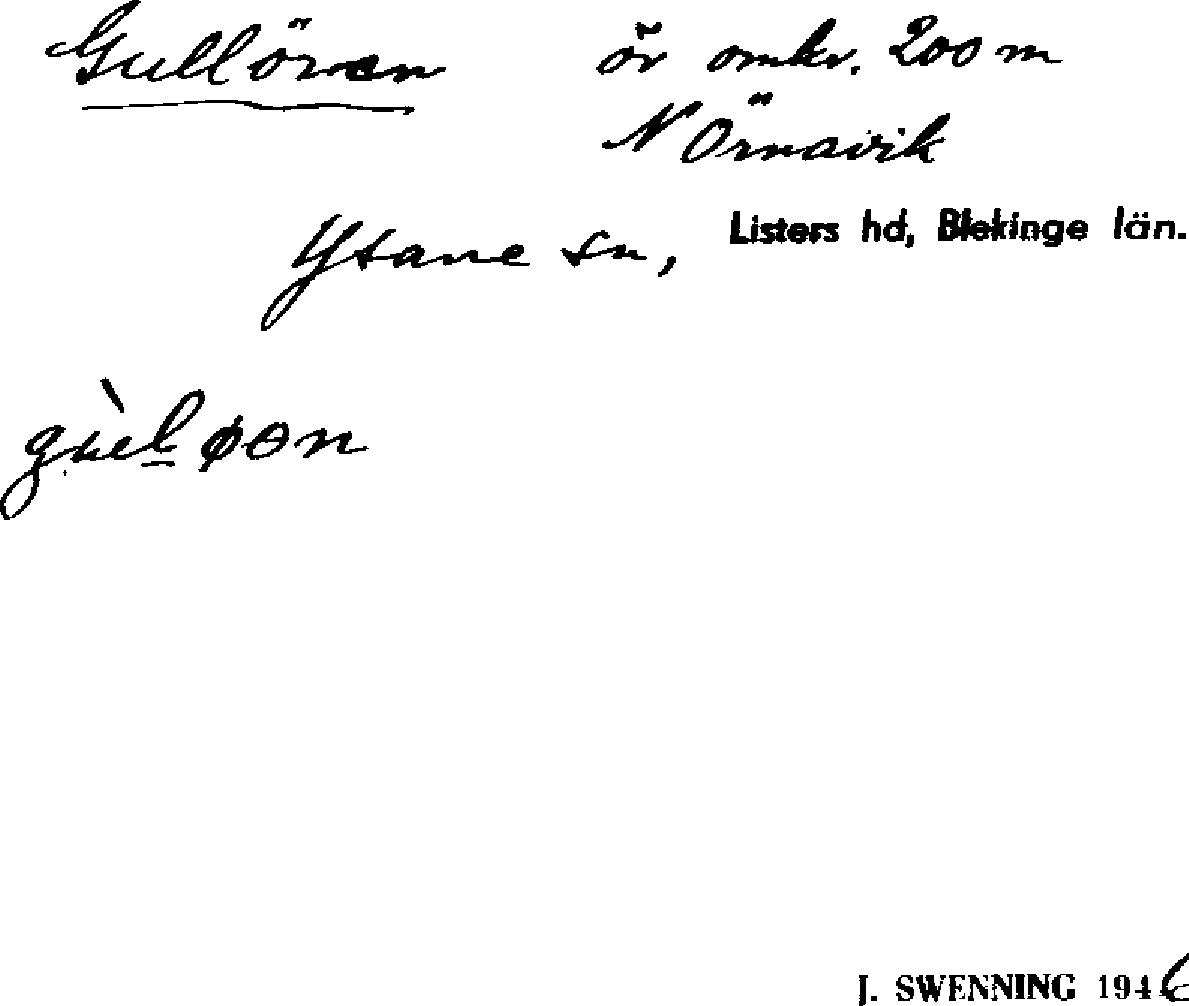 Gullören ör omkr. 200 m
N Örnavik
Ysane sn, Listers hd, Blekinge län.
gùl̲øөn
J. SWENNING 1946